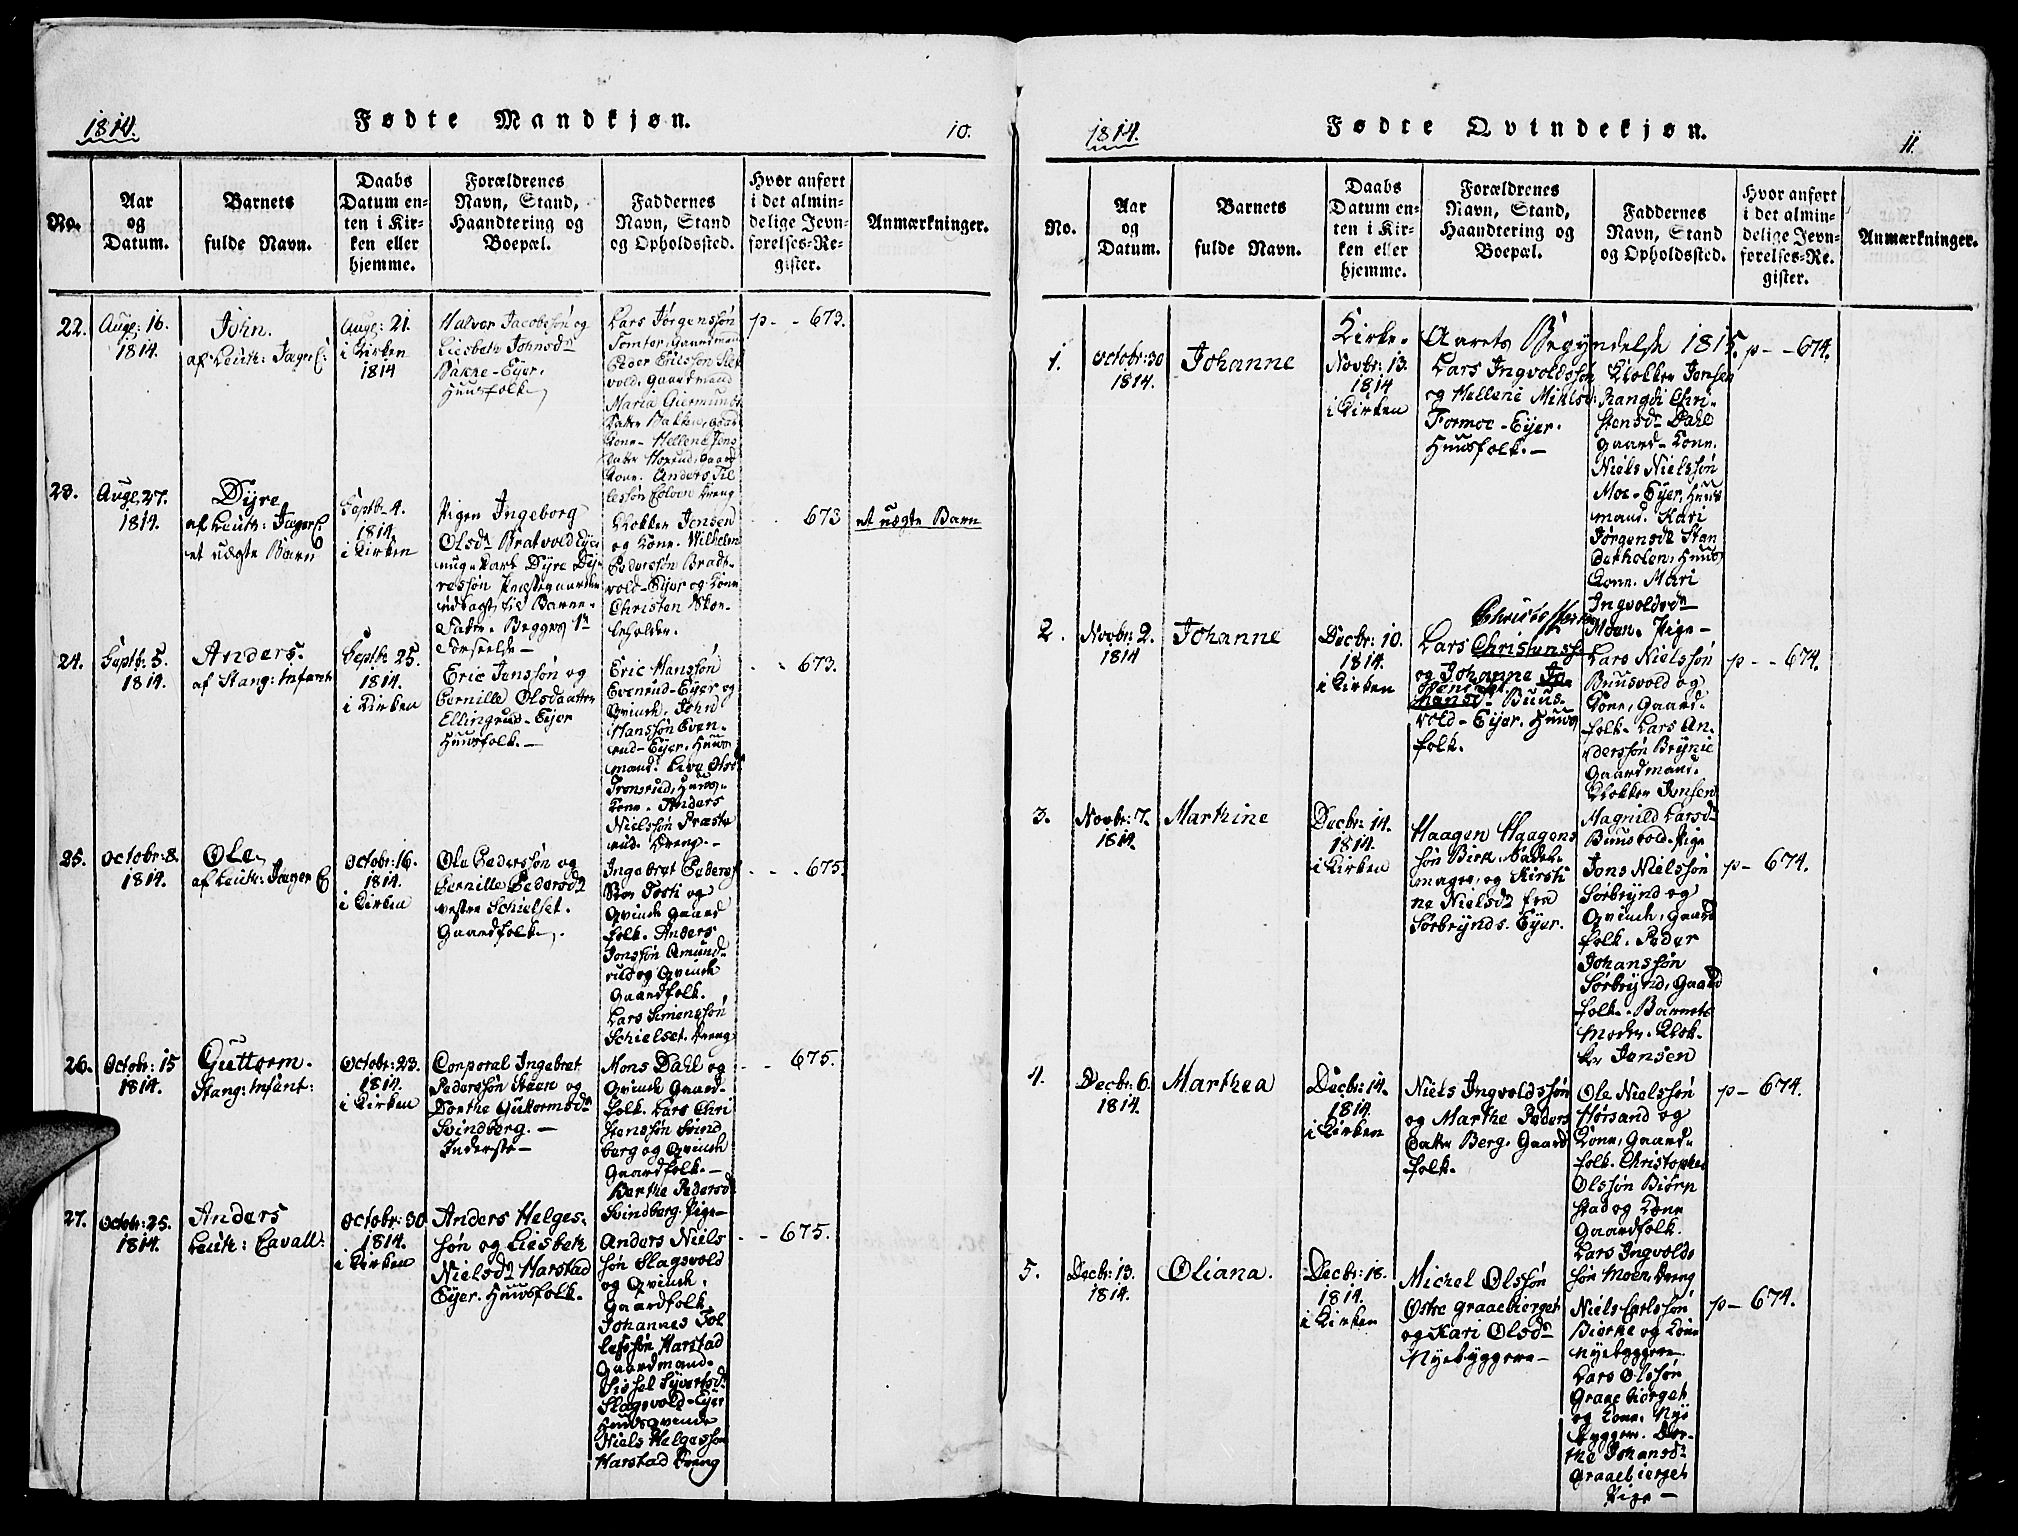 1814.
Fødte Mandkjøn.
10.
No.
Aar
og
Datum.
Barnets
fulde Navn.
Daabs
Datum en-
ten i Kir-
ken eller
hjemme.
Forældrenes
Navn, Stand,
Haandtering og
Boepæl.
Faddernes
Navn, Stand
og Opholdssted.
Hvor anført
i det almin-
delige Jevn-
førelses-Re-
gister.
Anmærkninger.
22.
Aug: 16.
1814.
John.
af Leuth: Jager C:
Aug: 21.
i Kirken
1814
Halvor Jacobssøn og
Liesbeth Johnsdr
Bakke-Eyer.
Huusfolk
Lars Jørgenssøn
Tomter, Gaardmand
Peder Erilssøn Slet
vold, Gaardmand
Maria Giermunds
datter Bakken, Gaard
Kone. Hellene Jons
datter Horrud, Gaard
Kone. Anders Til
lessøn Kolven Dreng
p - - 673.
23.
Aug: 27.
1814.
Dyre
af Leuth: Jager C:
et uægte Barn
Septb. 4.
1814.
i Kirken
Pigen Ingeborg
Olsdr Bratvold Eyer
ung-karl Dyre Dy-
ressøn Præstegaarden
udlagt til Barne-
Fader. Begges 1te
Forseelse-
Klokker Jensen
og Kone. Wilhelm
Pederssøn Bradt-
vold-Eyer og Kone
Christen Skoe-
beholder.
- - 673
et uægte Barn
24.
Septb. 5.
1814.
Anders.
af Stang: Infanterie
Septb 25.
1814.
i Kirken
Eric Jonssøn og
Pernille Olsdaatter
Ellingrus-Eyer
Huusfolk.-
Eric Hanssøn
Evenrud-Eyer og
Qvinde. John
Hanssøn Even-
rud-Eyer. Huus
mand. Live Olsdr
Tronsrud, Huus-
Kone. Anders
Nielssøn Præste
rud. Dreng.-
- - 673.
25.
Octobr: 8.
1814.
Ole
af Leuth: Jager C
Octobr: 16.
1814.
i Kirken
Ole Pederssøn og
Pernille Pedersdr
vestre Schielset.
Gaardfolk.
Ingebret Peders
Stor Tosti og
Qvinde Gaard
folk. Anders
Jonssøn Amund-
rud og Qvinde
Gaardfolk.
Lars Simenssøn
Schielset. Dreng
- - - 675.
26.
Octobr: 15
1814.
Guttorm.
Stang: Infant:
Octobr: 23.
1814.
i Kirken
Corporal Ingebret
Pederssøn Steen og
Dorthe Guttormsdr
Svindberg.-
Inderste-
Mons Dahl og
Qvinde Gaard-
folk. Lars Chri
stenssøn Svind
berg og Qvinde
Gaardfolk.-
Berthe Pedersdr
Svindberg. Pige-
- - 675.
27.
Octobr: 25.
1814.
Anders
Leuth: Cavall:
Octobr: 30
1814.
i Kirken
Anders Helges-
søn og Liesbeth
Nielsdr Harstad
Eyer. Huusfolk.
Anders Niels
søn Slagsvold
og Qvinde,
Gaardfolk.
Johannes Tol
lefssøn Harstad
Gaardmand.
Sissel Syvertsdr
Slagsvold-Eyer
Huusqvinde
Niels Helgessøn
Harstad Dreng
- - 675.
1814.
Fødte Qvindekjøn.
11.
No.
Aar
og
Datum.
Barnets
fulde Navn.
Daabs
Datum en-
ten i Kir-
ken eller
hjemme.
Forældrenes
Navn, Stand,
Haandtering og
Boepæl.
Faddernes
Navn, Stand
og Opholdssted.
Hvor anført
i det almin-
delige Jevn-
førelses-Re-
gister.
Anmærkninger.
Kirke-Aarets Begyndelse 1815.
1.
Octobr: 30
1814.
Johanne
Novbr: 13.
1814
i Kirken
Lars Ingvoldssøn
og Hellene Mikls:
Formoe-Eyer.
Huusfolk.-
Klokker Jensen
Rangdi Chri-
stensdr Dahl
Gaard-Kone.
Niels Nielssøn
Moe-Eyer, Huus
mand. Kari
Jørgensdr Stan
derholen, Huus
Kone. Mari
Ingvoldsdr
Moen. Pige-
p - - 674.
2.
Novbr: 2.
1814
Johanne
Decbr: 10.
1814.
i Kirken
Christophers
Lars Christenss
og Johanne Jo
hansdr Buus-
vold-Eyer. Huus
folk.
Lars Nielssøn
Buusvold og
Kone, Gaard-
folk. Lars An-
derssøn Brynie
Gaardmand.
Klokker Jensen
Magnild Larsdr
Buusvold. Pige
p - - 674.
3.
Novbr: 7.
1814.
Marthine
Decbr: 14.
1814.
i Kirken
Haagen Haagens
søn Birk, Sadel-
mager, og Kirsti
ne Nielsdr fra
Sørbrynds. Eyer.
Jens Nielssøn
Sørbrynd og
Qvinde, Gaard
folk. Peder
Johanssøn
Sørbrynd, Gaard
folk. Barnets
Moder. Klok-
ker Jensen
p - 674.
4.
Decbr: 6.
1814.
Marthea
Decbr: 14.
1814.
i Kirken
Niels Ingvoldssøn
og Marthe Peders
datter Berg. Gaard
folk.
Ole Nielssøn
Hørsand og
Kone, Gaard-
folk. Christopher
Olssøn Biørn
stad og Kone
Gaardfolk.
Lars Ingvolds
søn Moen. Dreng
p - 674.
5.
Decbr: 13.
1814.
Oliana.
Decbr: 18.
1814.
i Kirken
Michel Olssøn
Østre Graaebierget
og Kari Olsdr
Nyebyggere-
Niels Carlssøn
Biørke og Kone
Nyebyggere
Lars Olssøn
Graaebierget
og Kone. Nye
byggere. Dor-
the Johansdr
Graaebierget
Pige-
p - 674.